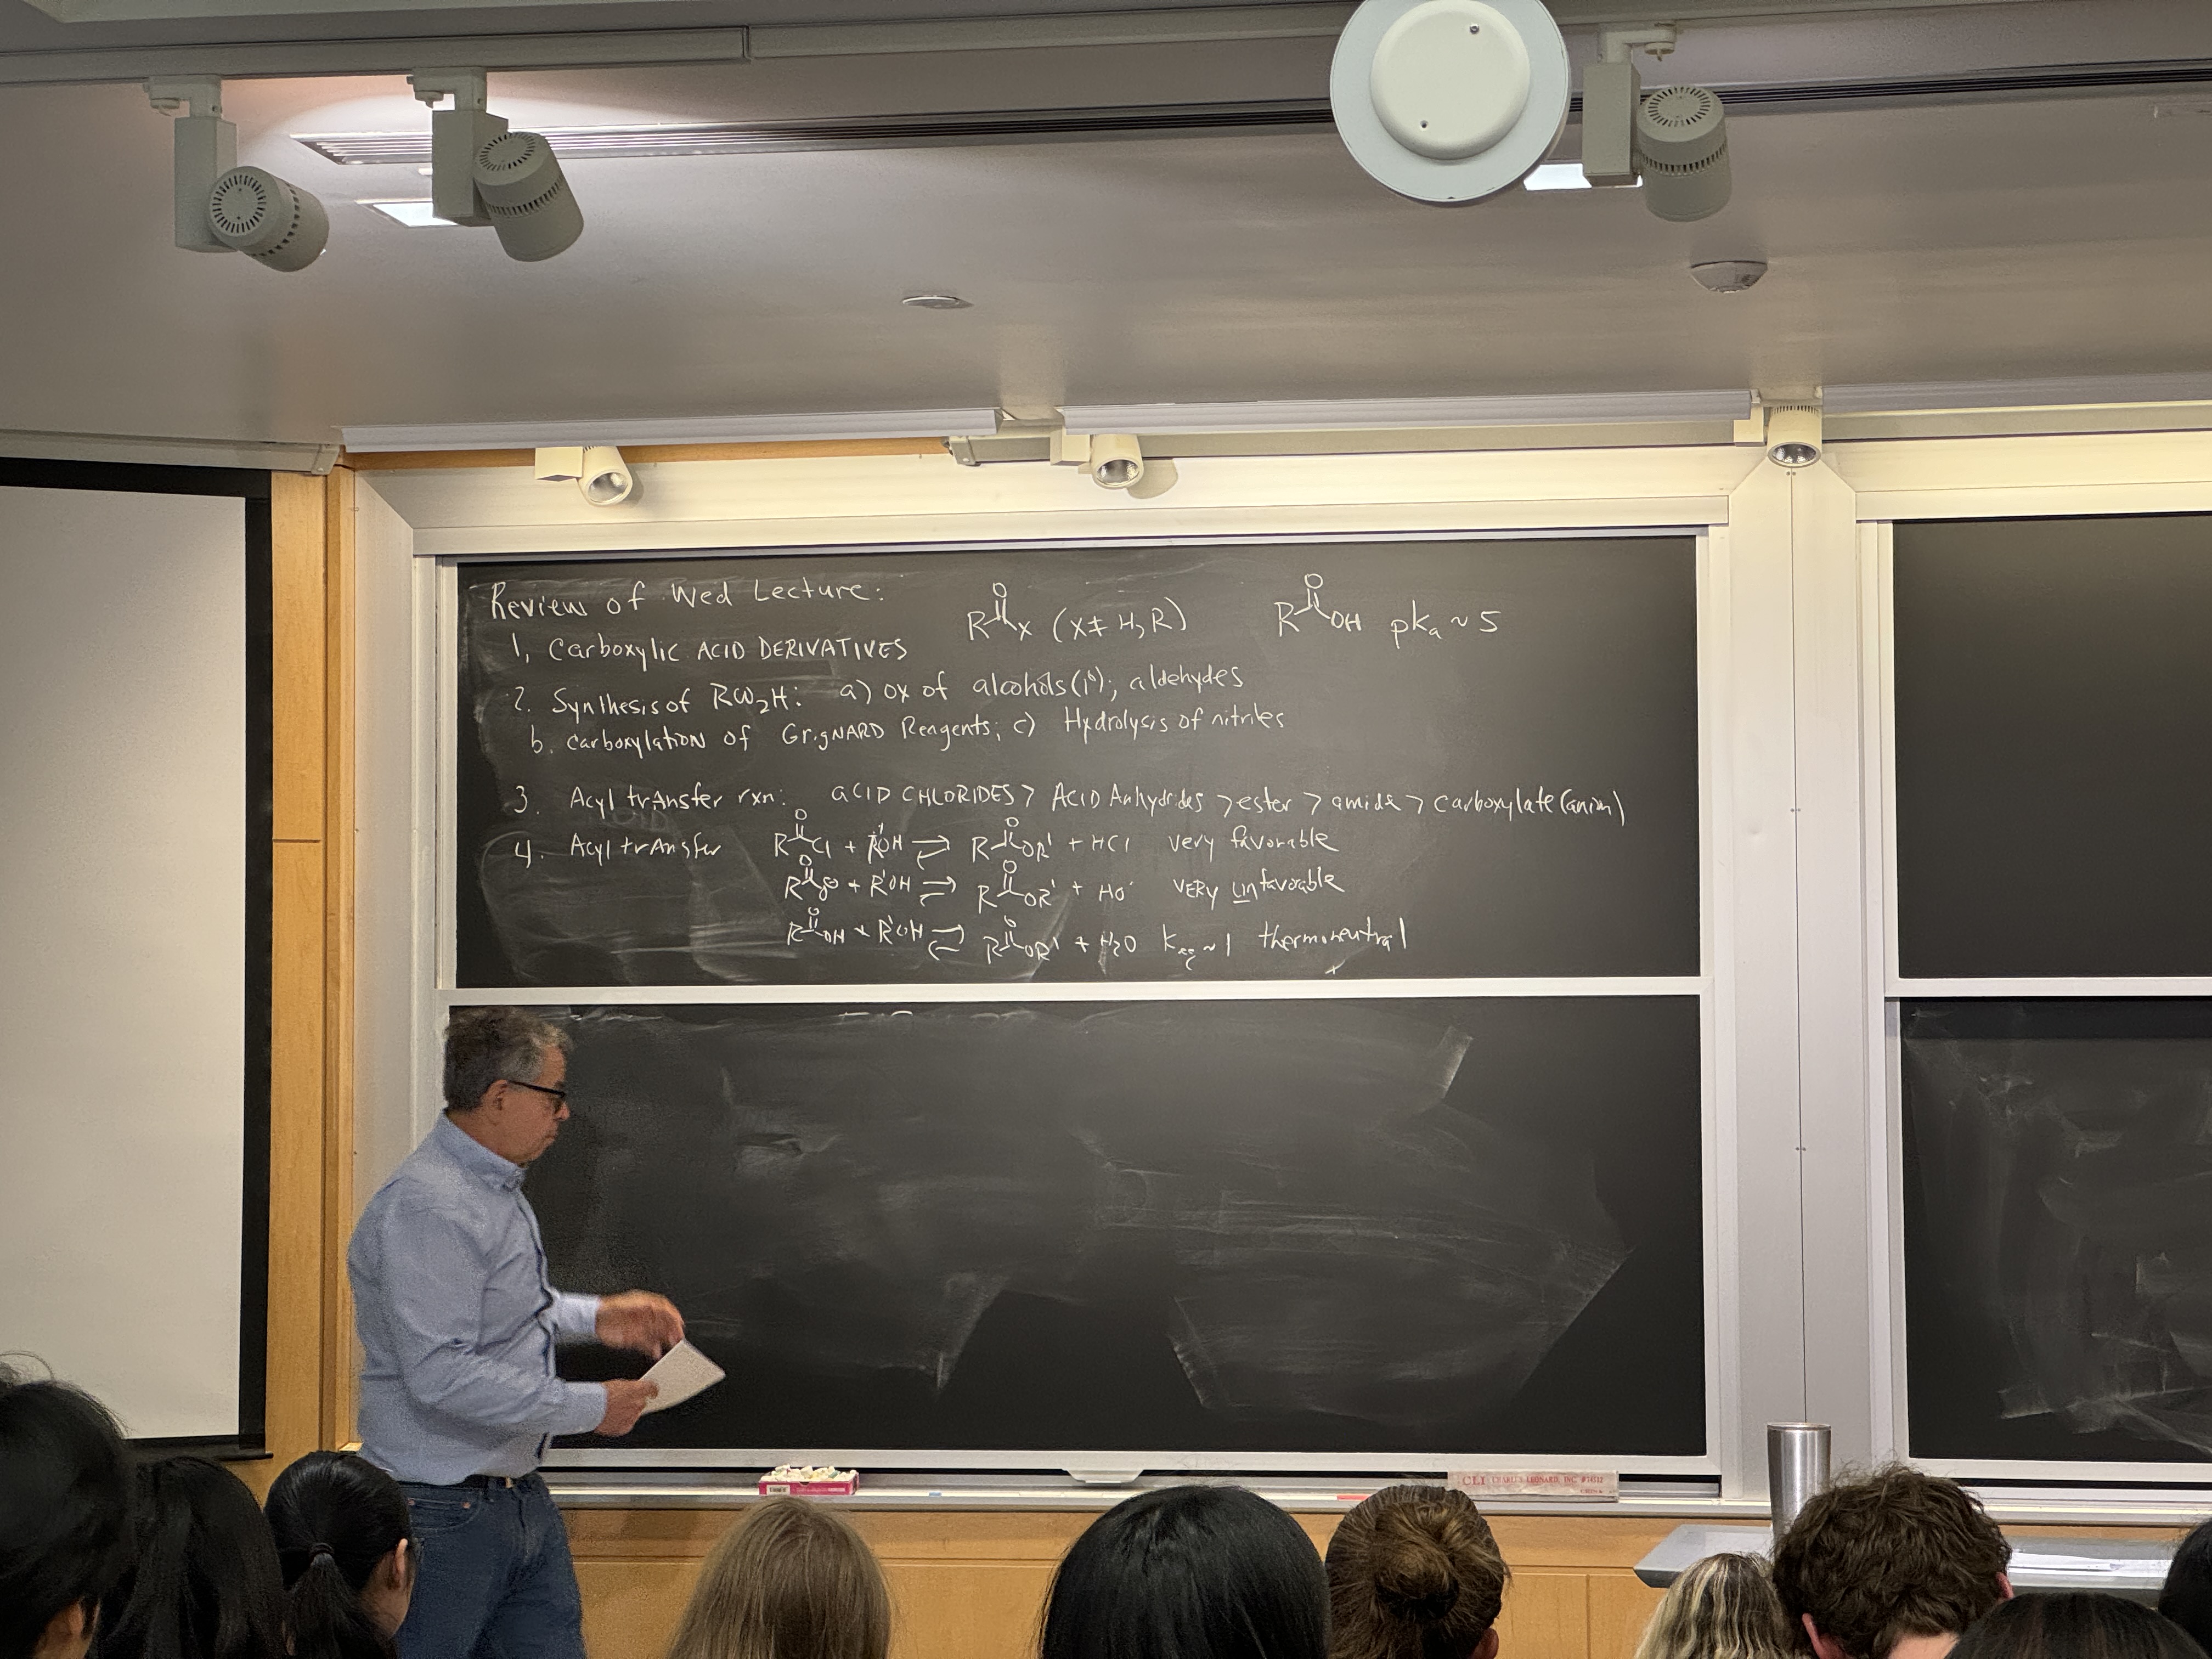 Review of Wed Lecture:
1, Carboxylic ACID DERIVATIVES
O
R X (X≠ H, R)
O
R OH pKa ~ 5
2. Synthesis of RCO2H: a) ox of alcohols (1°); aldehydes
b. carboxylation of GrigNARD Reagents; c) Hydrolysis of nitriles
3. Acyl transfer rxn: aCID CHLORIDES > ACID Anhydrides > ester > amide > carboxylate (anion)
4. Acyl transfer R Cl + R'OH ⇌ R OR' + HCl very favorable
R O⊖ + R'OH ⇌ R OR' + HO⁻ VERY unfavorable
R OH + R'OH ⇌ R OR' + H2O Keq ~ 1 thermoneutral
CLI CHARLES LEONARD, INC.